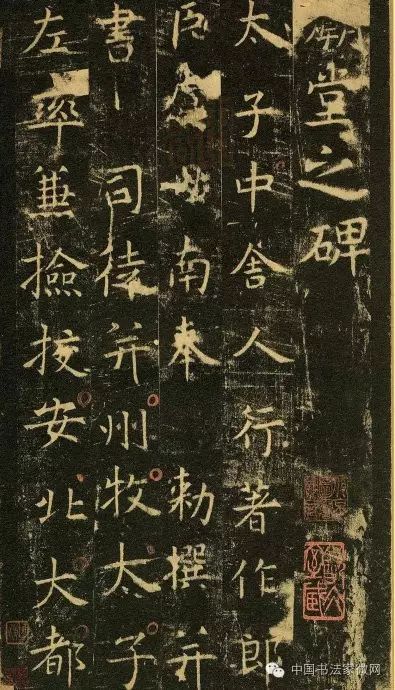 堂之碑
太子中舍人行著作郎
臣虞世南奉 勅撰并
書 司徒并州牧太子
左率兼撿挍安北大都
中国书法家微网